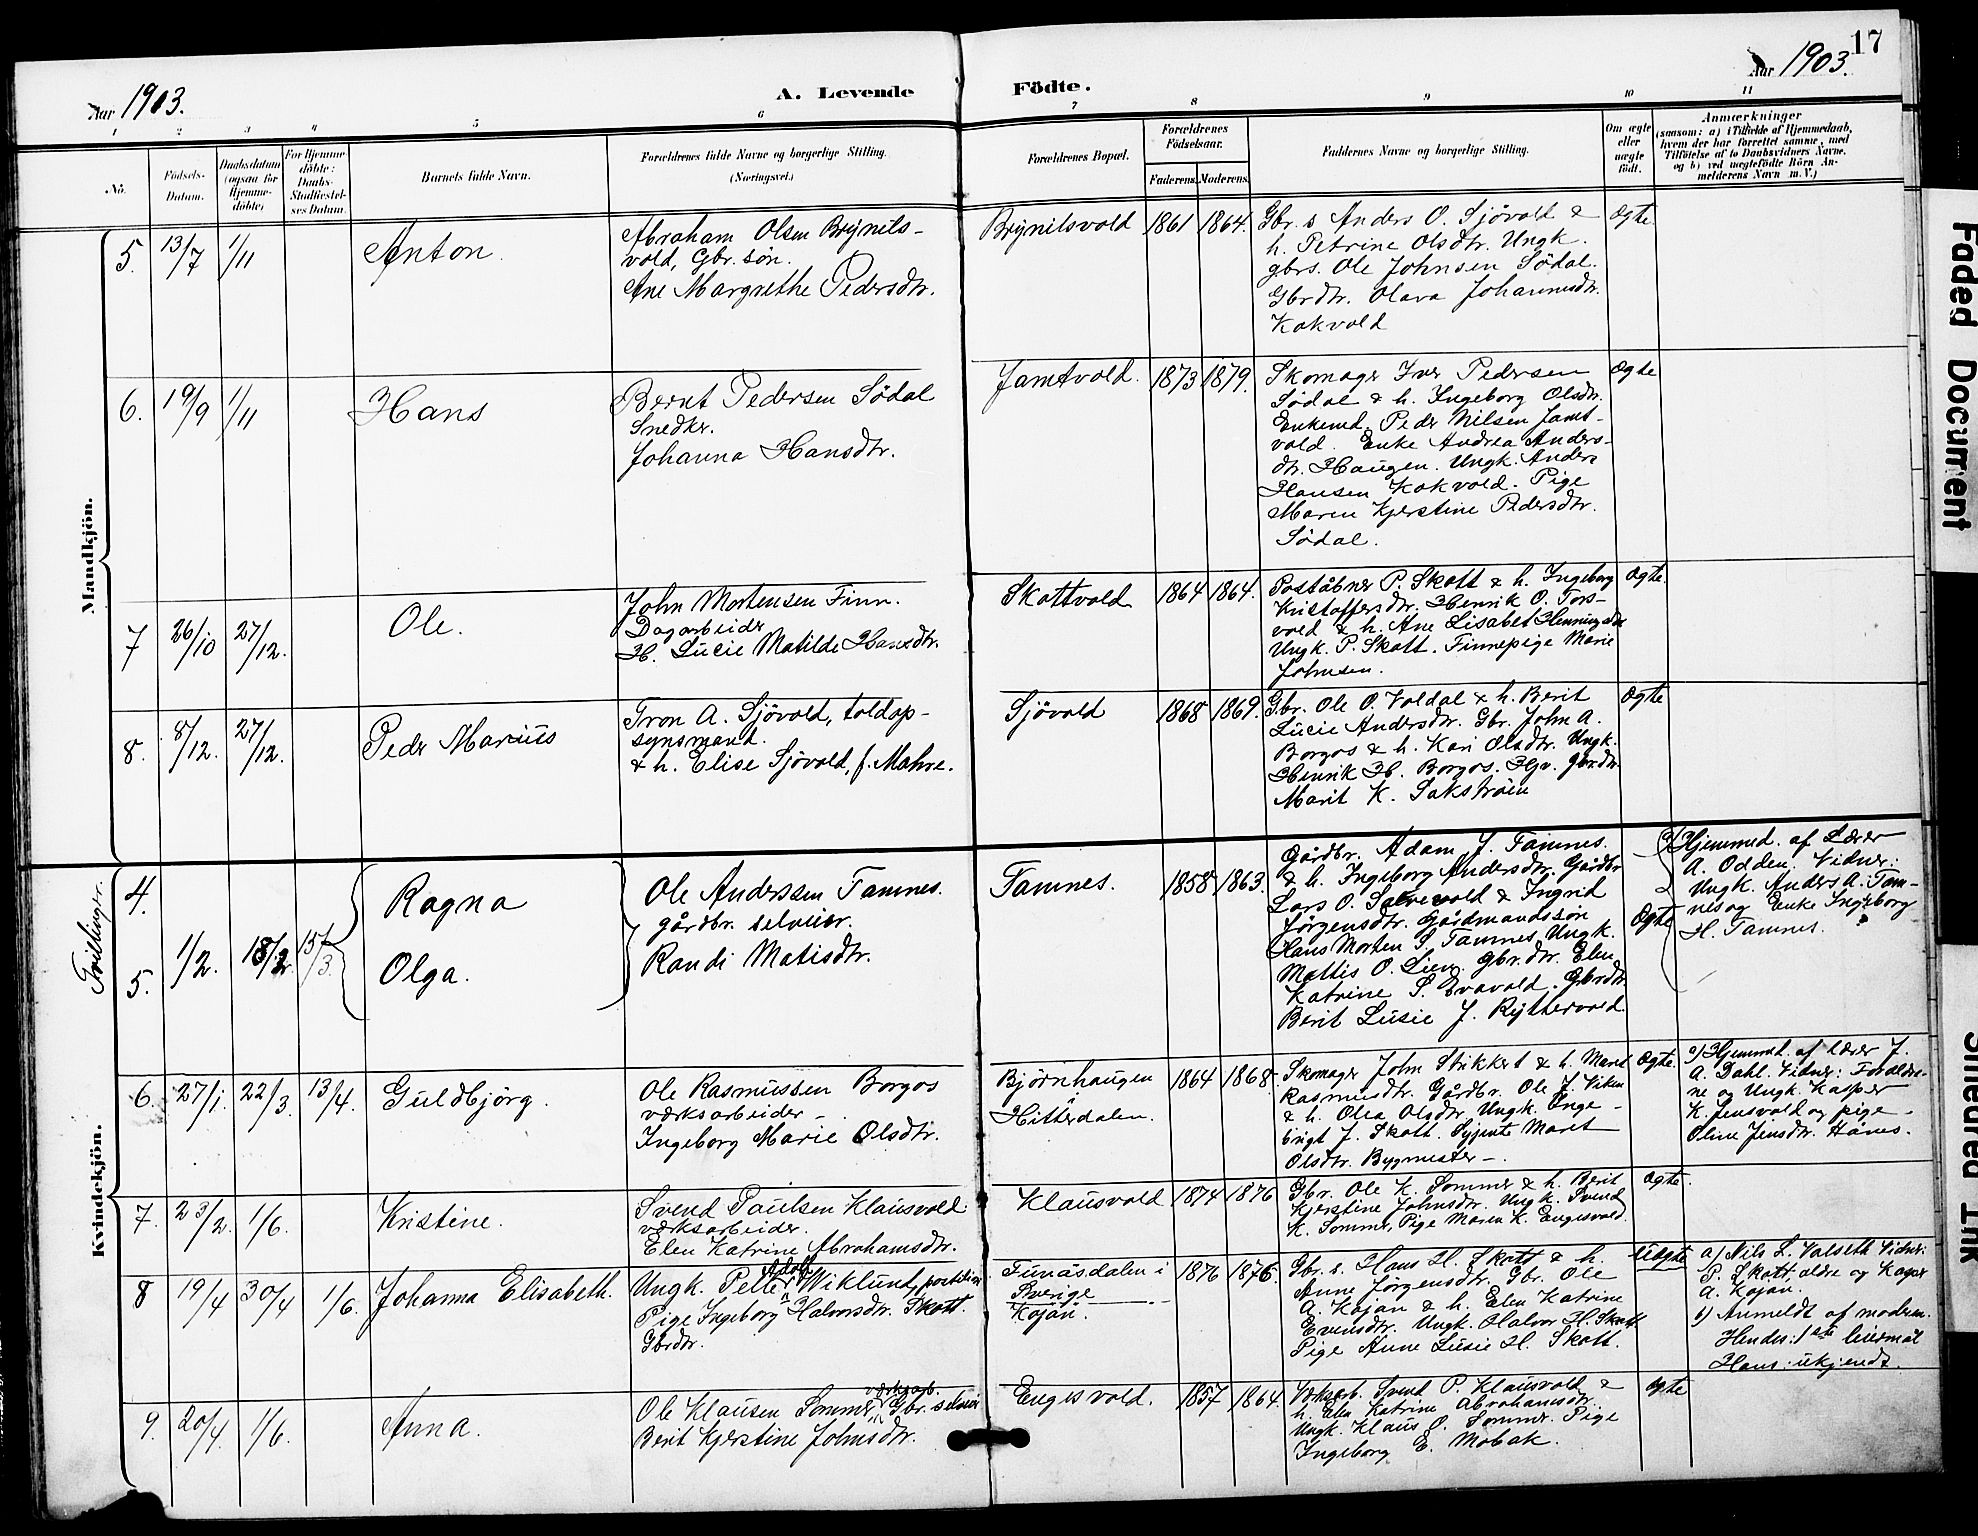 17
Aar 1903.
A. Levende Födte.
Aar 1903.
1 2 3 4 5 6 7 8 9 10 11
No.
Födsels-
Datum.
Daabsdatum
(ogsaa for
Hjemme-
döbte)
For Hjemme-
döbte:
Daabs-
Stadfæstel-
ses Datum.
Barnets fulde Navn.
Forældrenes fulde Navne og borgerlige Stilling.
(Næringsvei.)
Forældrenes Bopæl.
Forældrenes
Födselsaar.
Faderens. Moderens.
Faddernes Navne og borgerlige Stilling.
Om ægte
eller
uægte
födt.
Anmærkninger
(saasom: a) i Tilfælde af Hjemmedaab,
hvem der har forrettet samme, med
Tilföielse af to Daabsvidners Navne,
og b) ved uægtefödte Börn An-
melderens Navn m.V.)
Mandkjön.
5. 13/7 1/11 Anton.
Abraham Olsen Brynils-
vold, Gbr. søn.
Ane Margrethe Pedersdtr.
Brynilsvold 1861 1864.
Gbr. s Anders O. Sjövold &
h. Petrine Olsdtr. Ungk.
gbrs. Ole Johnsen Södal.
Gbrdtr. Olava Johannesdtr.
Kokvold
Ægte.
6. 19/9 1/11 Hans
Bernt Pedersen Södal
Snedker.
Johanna Hansdtr.
Jamtvold. 1873 1879.
Skomager Iver Pedersen
Södal & h. Ingeborg Olsdtr.
Enkemd. Peder Nilsen Jamt-
vold. Enke Andrea Anders-
dtr. Haugen. Ungk. Anders
Hansen Kokvold. Pige
Maren Kjerstine Pedersdtr.
Södal.
Ægte
7 26/10 27/12. Ole.
John Mortensen Finn.
Dagarbeider
H. Lucie Matilde Hansdtr.
Skottvold 1864 1864.
Poståbner P. Skott & h. Ingeborg
Kristoffersdtr. Henrik O. Tors-
vold & h. Ane Lisabet Henningsdtr
Ungk. P. Skott. Finnepige Marie
Johnsen.
Ægte.
8. 8/12. 27/12. Peder Marius
Tron A. Sjövold, toldop-
synsmand.
& h. Elise Sjövold, f. Mahre.
Sjövold 1868 1869.
Gbr. Ole O. Voldal & h. Berit
Lucie Andersdtr. Gbr. John A.
Borgos & h. Kari Olsdtr. Ungk.
Henrik H. Borgos. Gbrdtr.
Marit K. Sakströen
Ægte
Kvindekjön.
Tvillinger.
4. 5. 1/2. 18/2 15/3.
Ragna
Olga.
Ole Anderssen Tamnes.
gårdbr. selveier.
Randi Matisdtr.
Tamnes. 1858 1863.
Gårdbr. Adam J. Tamnes.
& h. Ingeborg Andersdtr. Gårdbr
Lars O. & Ingrid
Jörgensdtr. Gårdmandssön
Hans Morten S. Tamnes. Ungk.
Mattis O. Lien. Gbr. dtr. Elen
Katrine S. Evavold. Gbrdtr
Berit Lusie J. Ryttervold
Ægte
a) Hjemmed. af Lærer
A. Odden. Vidner:
Ungk. Anders A. Tam-
nes og Enke Ingeborg
H. Tamnes.
6. 27/1. 22/3. 13/4. Guldbjörg.
Ole Rasmussen Borgos
værksarbeider -
Ingeborg Marie Olsdtr.
Bjørnhaugen
Hitterdalen.
1864 1868
Skomager John Strikkert & h. Maret
Rasmusdtr. Gårdbr. Ole J. Viken
& h. Olea Olsdtr. Ungk. Enge-
brigt J. Skott. Syjente Maret
Olsdtr. Bygmester -.
Ægte.
a) Hjemmed. af Lærer J.
A. Dahl. Vidner: Forældre-
ne og Ungk. Kasper
K. Jensvold og pige
Oline Jensdtr. Hånes.
7. 23/2. 1/6. Kristine.
Svend Paulsen Klausvold
værksarbeider.
Elen Katrine Abrahamsdtr.
Klausvold 1874 1876
Gbr. Ole K. Sommer & h. Berit
Kjerstine Johnsdtr. Ungk. Svend
K. Sommer, Pige Maren K. Engesvold.
Ægte.
8 19/4 30/4 1/6. Johanna Elisabeth.
Adolf
Ungk. Petter Wiklund,
Pige Ingeborg Halvorsdtr. Skott.
Gbrdtr.
Funäsdalen i
Sverige
Kojan.
1876 1876.
Gbr. s. Hans H. Skott & h.
Anne Jörgensdtr. Gbr. Ole
A. Kojan & h. Elen Katrine
Evensdtr. Ungk. Halvor H. Skott
Pige Anne Lusie H. Skott.
Uægte
a) Nils L. Valseth Vidner:
P. Skott, ældre og Kasper
A. Kojan.
b) Anmeldt af moderen.
Hendes: 1ste leiermål
Hans: ukjendt.
9. 20/4. 1/6. Anna.
værksarb.
Ole Klausen Sommer, Gbr. selveier
Berit Kjerstine Johnsdtr.
Engesvold. 1857 1864.
Værksarb. Svend P. Klausvold &
h. Elen Katrine Abrahamsdtr.
Ungk. Klaus O. Sommer. Pige
Ingeborg E. Mobak.
Ægte
Faded Document
Smeared Ink